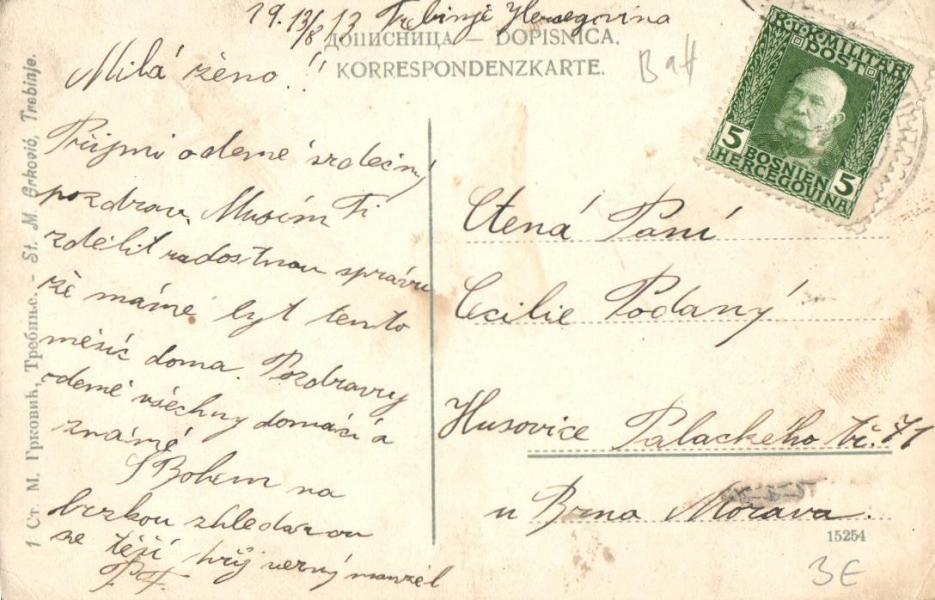 19 13/8 13 Trebinje Hercegovina
ДОПИСНИЦА — DOPISNICA.
KORRESPONDENZKARTE.
Milá ženo!!
Přijmi odemě srdečný
pozdrav. Musím Ti
zdělit radostnou správu
že máme byt tento
měsíc doma. Pozdravuj
odemě všechny domácí a
známé
S Bohem na
brzkou zhledanou
se těší tvůj věrný manžel
K.u.K. MILITÄR
POST
5 5
BOSNIEN
HERCEGOVINA
Ctená Paní
Cecilie Podaný
Husovice Palackého tř. 71
u Brna Morava.
15254
3E
1 Ст. М. Грковић, Требиње. - St. M. Grković, Trebinje.